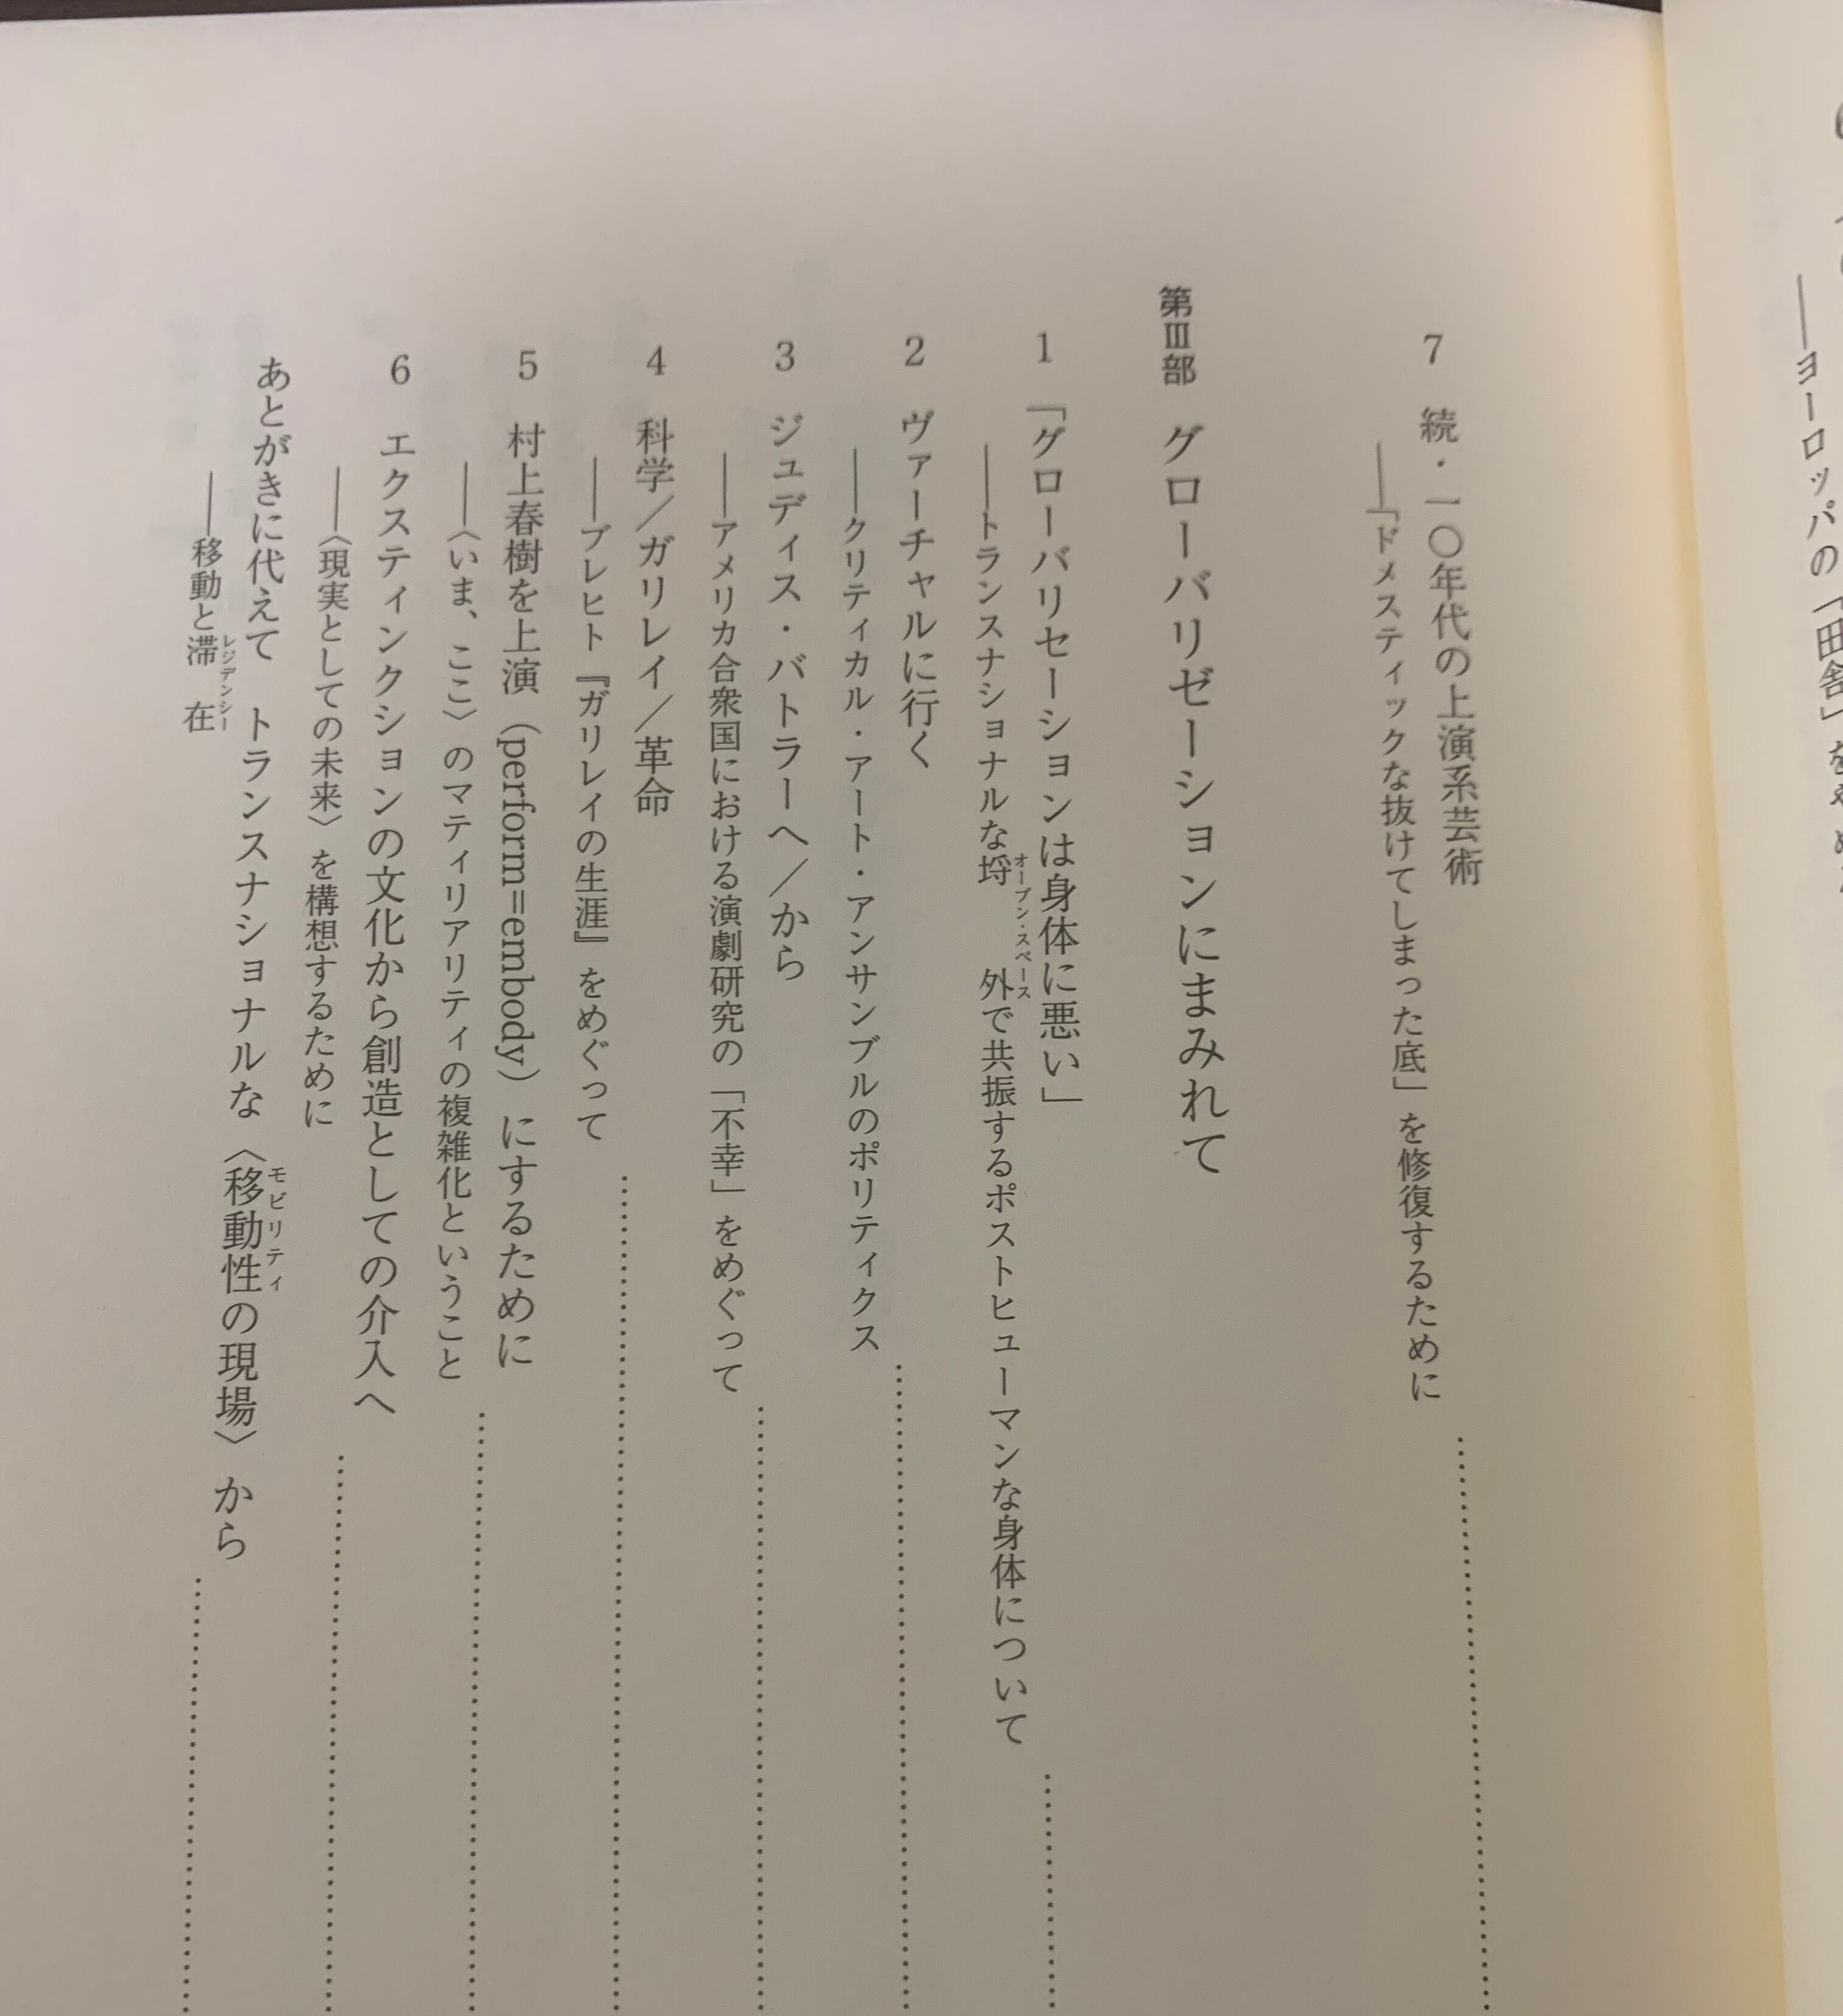 ――ヨーロッパの「田舎」を
7 続・一〇年代の上演系芸術
――「ドメスティックな抜けてしまった底」を修復するために
第Ⅲ部 グローバリゼーションにまみれて
1 「グローバリセーションは身体に悪い」
――トランスナショナルな埒外で共振するポストヒューマンな身体について
オープン・スペース
2 ヴァーチャルに行く
――クリティカル・アート・アンサンブルのポリティクス
3 ジュディス・バトラーへ／から
――アメリカ合衆国における演劇研究の「不幸」をめぐって
4 科学／ガリレイ／革命
――ブレヒト『ガリレイの生涯』をめぐって
5 村上春樹を上演（perform=embody）にするために
――〈いま、ここ〉のマティリアリティの複雑化ということ
6 エクスティンクションの文化から創造としての介入へ
――〈現実としての未来〉を構想するために
あとがきに代えて トランスナショナルな〈移動性の現場〉から
モビリティ
――移動と滞在
レジデンシー